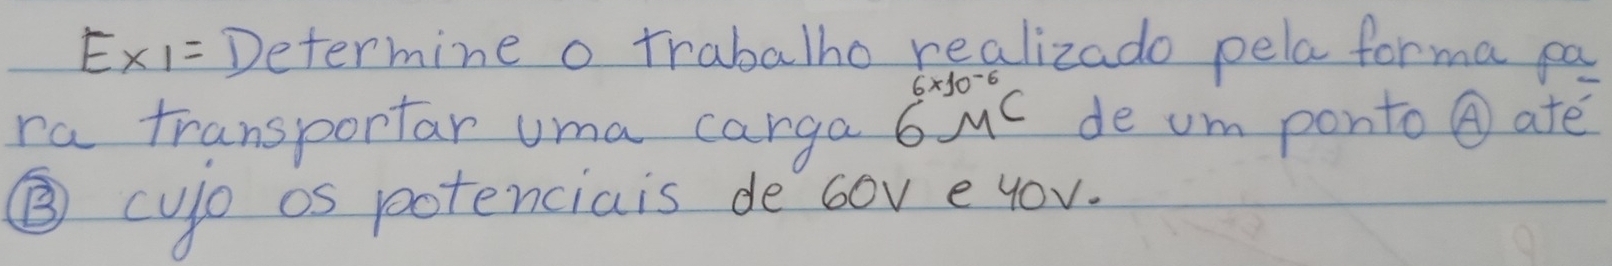 Ex1= Determine o trabalho realizado pela forma pa
6x10-6
ra transportar uma carga 6 MC de um ponto Ⓐ até
Ⓑ cujo os potenciais de 60V e 40V.